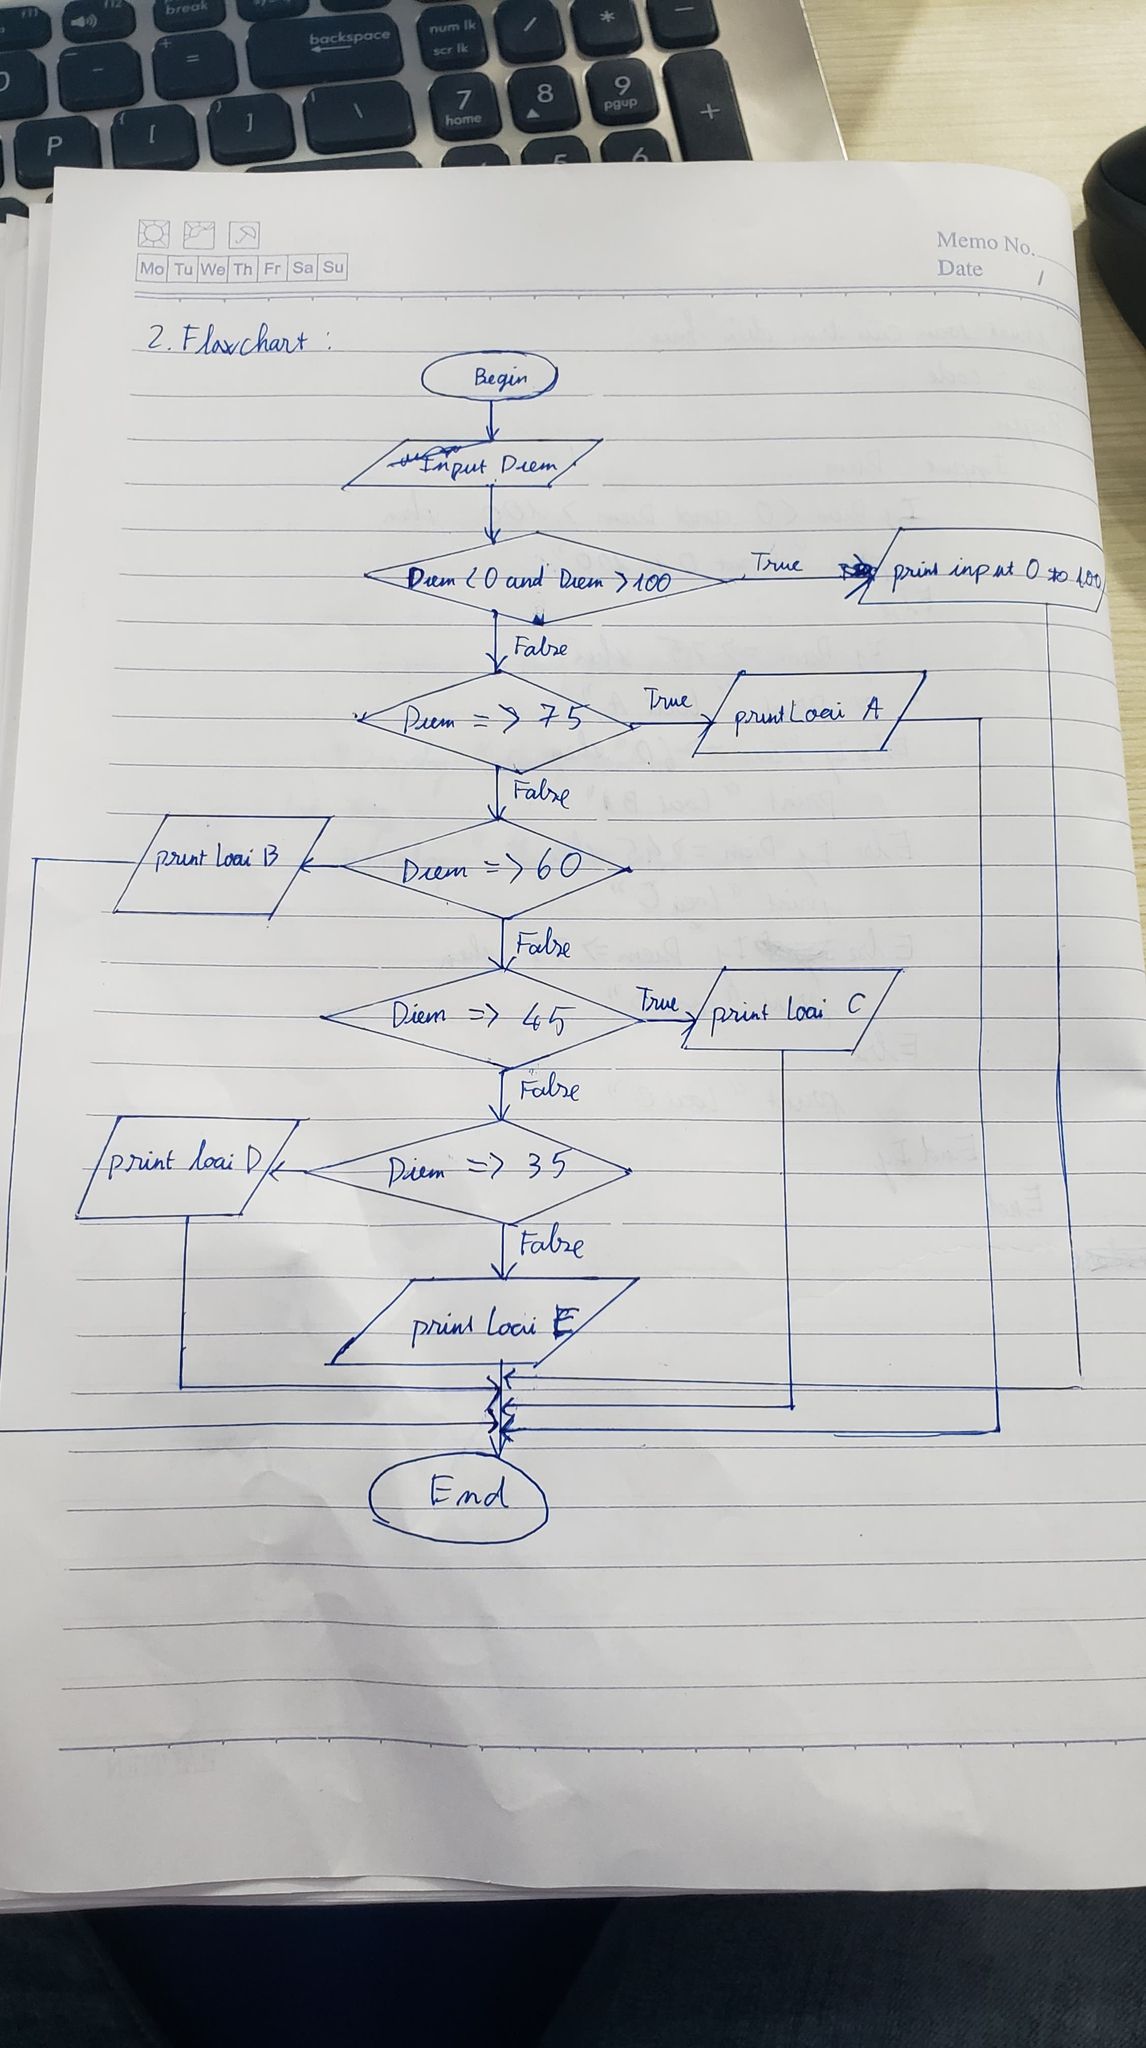 break
backspace
num lk
scr lk
/
*
-
-
=
7
home
8
9
pgup
+
P
[
]
\
5
6
Memo No.
Date 1
Mo Tu We Th Fr Sa Su
2. Flowchart :
Begin
Input Diem
Diem < 0 and Diem > 100
True
print input 0 to 100
False
Diem => 75
True
print Loai A
False
print Loai B
Diem => 60
False
Diem => 45
True
print Loai C
False
print loai D
Diem => 35
False
print Loai E
End